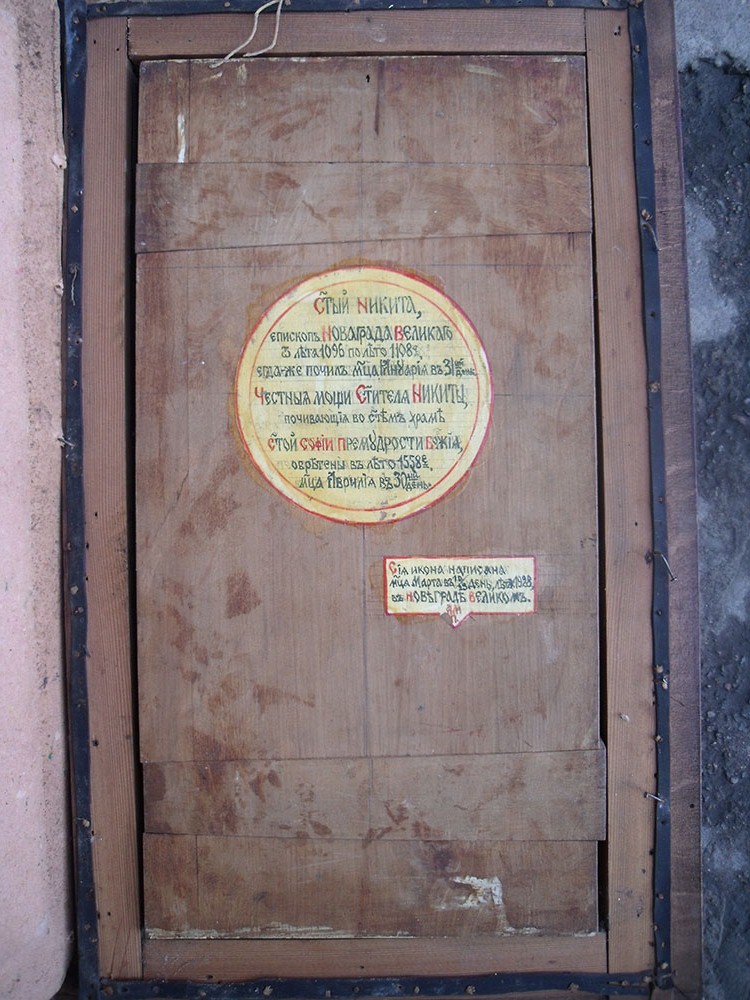 С҃тый Никита,
епископъ Новаграда Великагѡ
ѿ лѣта 1096 по лѣто 1108е,
егда-же почилъ м҃ца Іануарія въ 31й день.
Честныя мощи Ст҃ителя Никиты,
почивающія во ст҃ѣмъ храмѣ
ст҃ой Софіи Премудрости Бж҃ія,
обрѣтены въ лѣто 1558е,
м҃ца Априлія въ 30й день.
Сія икона написана
м҃ца Марта въ день, лѣта 1988,
въ Новѣградѣ Великомъ.